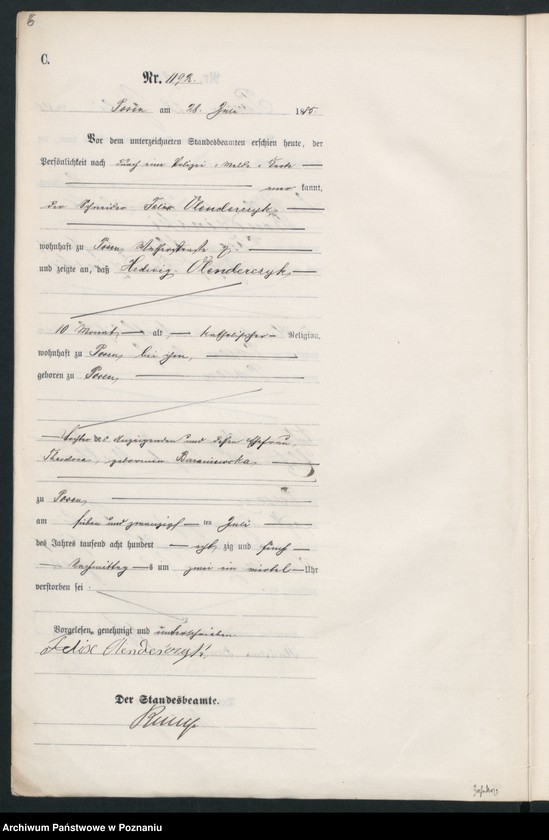 8
C.
Nr. 1192.
Posen am 28. Juli 1885.
Vor dem unterzeichneten Standesbeamten erschien heute, der
Persönlichkeit nach durch eine Polizei-Melde-Karte
kannt,
der Schneider Felix Olenderczyk,
wohnhaft zu Posen,
und zeigte an, daß Hedwig Olenderczyk,
10 Monat, alt, katholischer Religion,
wohnhaft zu Posen bei ihm,
geboren zu Posen,
Tochter des Anzeigenden und dessen Ehefrau
Theodora, geborenen Baraniewska
zu Posen
am sieben und zwanzigsten Juli
des Jahres tausend acht hundert achtzig und fünf
Nachmittags um zwei ein viertel Uhr
verstorben sei
Vorgelesen, genehmigt und unterschrieben
Felix Olenderczyk
Der Standesbeamte.
Archiwum Państwowe w Poznaniu